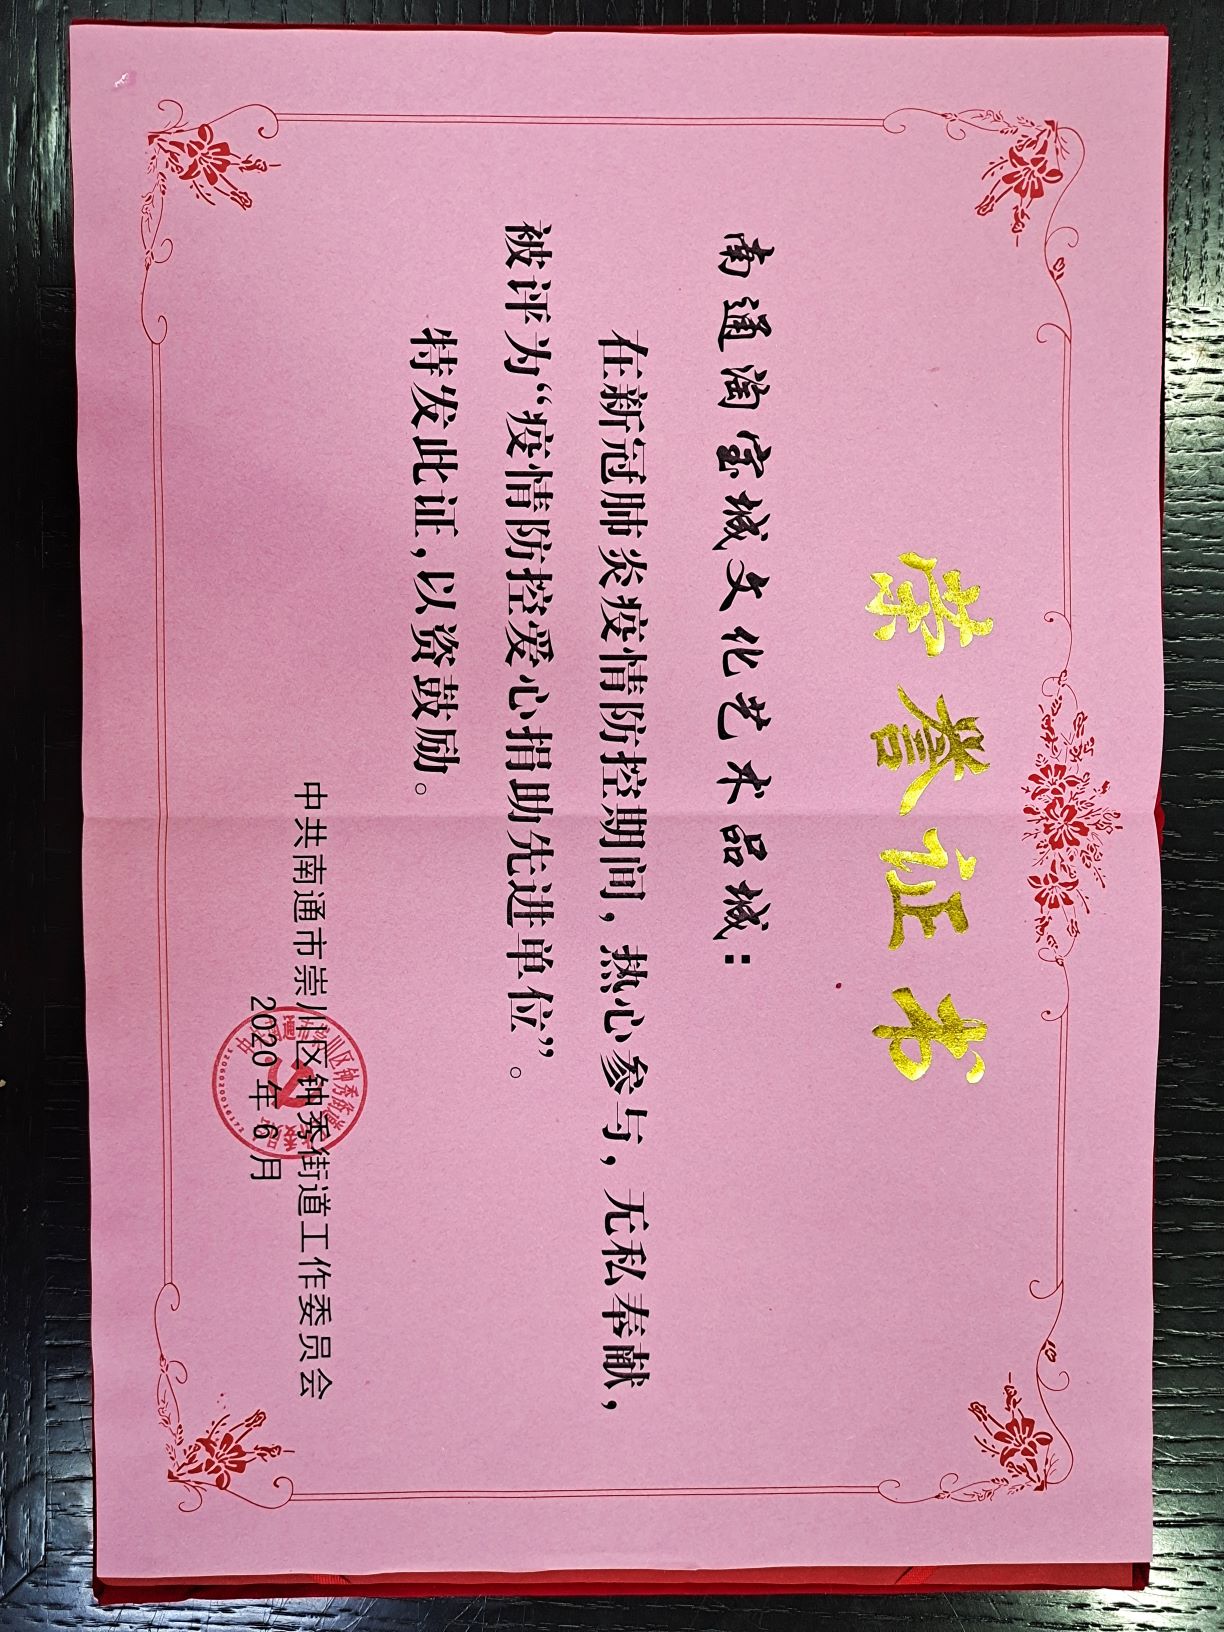 荣誉证书
南通淘宝城文化艺术品城：
在新冠肺炎疫情防控期间，热心参与，无私奉献，
被评为“疫情防控爱心捐助先进单位”。
特发此证，以资鼓励。
中共南通市崇川区钟秀街道工作委员会
2020年6月